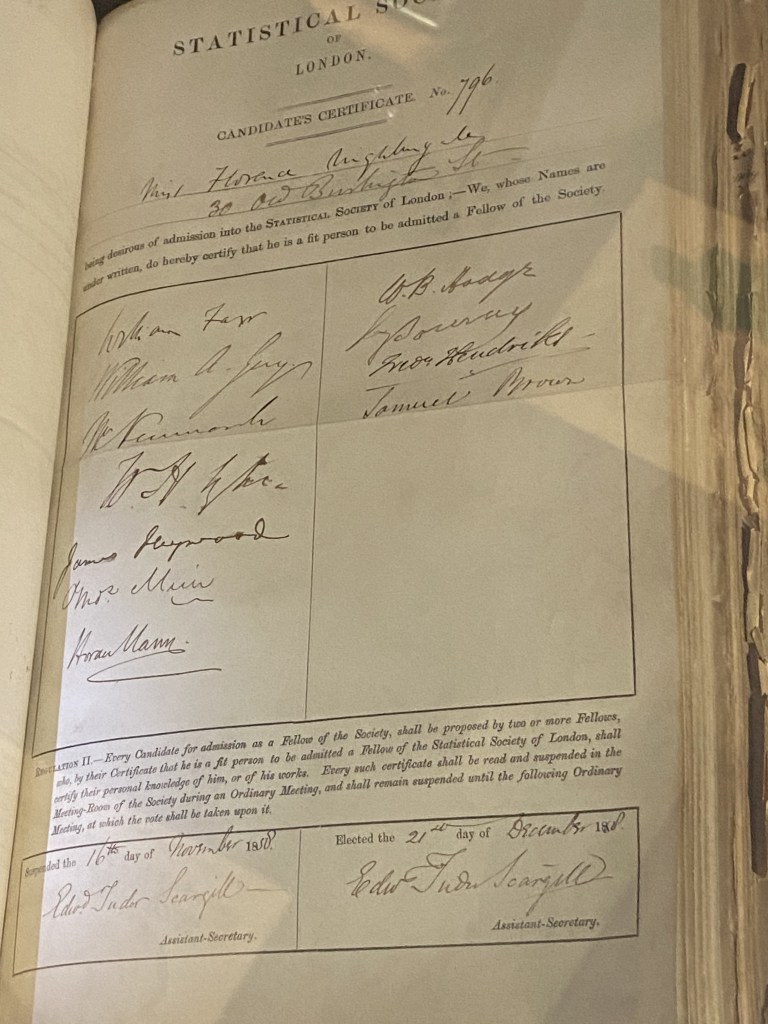 STATISTICAL SOC
OF
LONDON.
CANDIDATE'S CERTIFICATE. No. 796.
Miss Florence Nightingale
30 Old Burlington St
being desirous of admission into the STATISTICAL SOCIETY of London ;—We, whose Names are
under written, do hereby certify that he is a fit person to be admitted a Fellow of the Society.
William Farr
William A. Guy
W. H.
James Heywood
Thos. Muir
Horace Mann.
W. B. Hodge
Fredk Hendriks
Samuel Brown
REGULATION II.—Every Candidate for admission as a Fellow of the Society, shall be proposed by two or more Fellows,
who, by their Certificate that he is a fit person to be admitted a Fellow of the Statistical Society of London, shall
certify their personal knowledge of him, or of his works. Every such certificate shall be read and suspended in the
Meeting-Room of the Society during an Ordinary Meeting, and shall remain suspended until the following Ordinary
Meeting, at which the vote shall be taken upon it.
Suspended the 16th day of November 1858.
Edwd Tudor Scargill
Assistant-Secretary.
Elected the 21st day of December 1858.
Edwd Tudor Scargill
Assistant-Secretary.